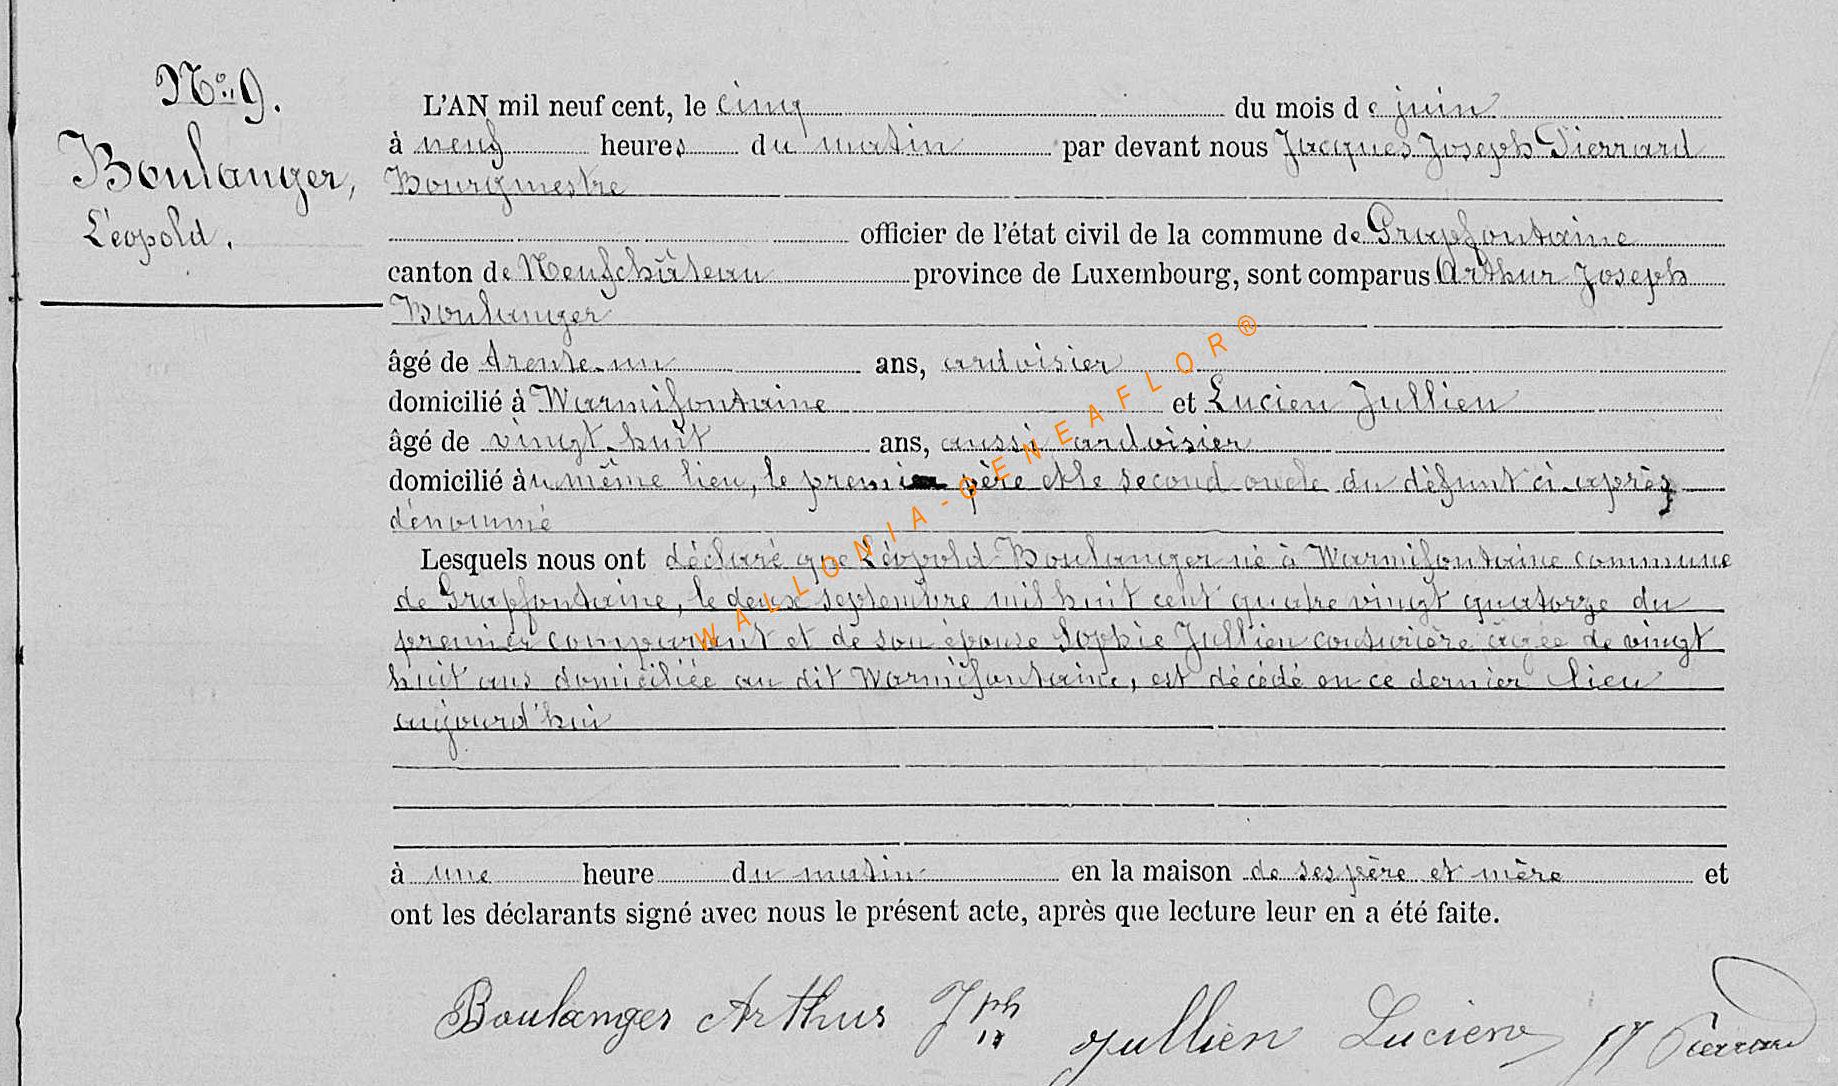 No. 9.
Boulanger,
Léopold.
L'AN mil neuf cent, le cinq du mois de juin
à neuf heures du matin par devant nous Jacques Joseph Pierrard
Bourgmestre
officier de l'état civil de la commune de Grapfontaine
canton de Neufchâteau province de Luxembourg, sont comparus Arthur Joseph
Boulanger
âgé de trente-un ans, ardoisier
domicilié à Warmifontaine et Lucien Jullien
âgé de vingt-huit ans, aussi ardoisier
domicilié au même lieu, le premier père et le second oncle du défunt ci-après
dénommé
Lesquels nous ont déclaré que Léopold Boulanger né à Warmifontaine commune
de Grapfontaine, le deux septembre mil huit cent quatre vingt quatorze du
premier comparant et de son épouse Sophie Jullien couturière âgée de vingt
huit ans domiciliée au dit Warmifontaine, est décédé en ce dernier lieu
aujourd'hui
à une heure du matin en la maison de ses père et mère et
ont les déclarants signé avec nous le présent acte, après que lecture leur en a été faite.
Boulanger Arthur Jph Jullien Lucien JJ Pierrard
WALLONIA-GENEAFLOR®